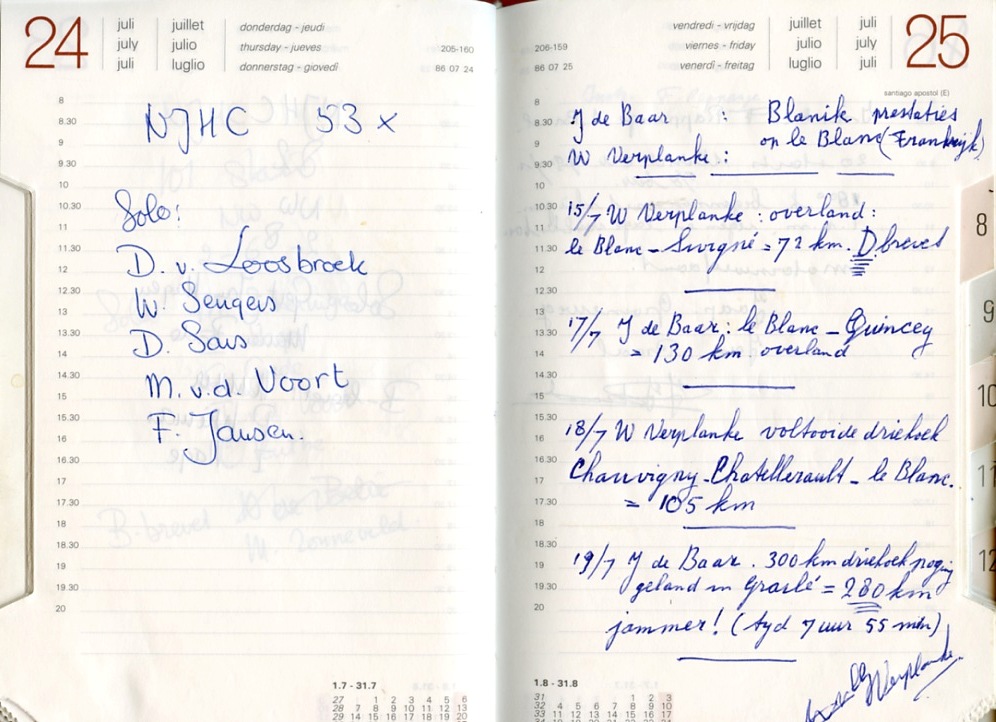 24
juli juillet donderdag - jeudi
july julio thursday - jueves 205-160
juli luglio donnerstag - giovedì 86 07 24
8
8.30
9
9.30
10
10.30
11
11.30
12
12.30
13
13.30
14
14.30
15
15.30
16
16.30
17
17.30
18
18.30
19
19.30
20
NJHC 53 x
Solo:
D. v. Loosbroek
W. Sengers
D. Sars
M. v.d. Voort
F. Jansen.
B. brevet
W. Zonneveld
1.7 - 31.7
27 1 2 3 4 5 6
28 7 8 9 10 11 12 13
29 14 15 16 17 18 19 20
vendredi - vrijdag juillet juli 25
206-159 viernes - friday julio july
86 07 25 venerdì - freitag luglio juli
santiago apostol (E)
8
8.30
9
9.30
10
10.30
11
11.30
12
12.30
13
13.30
14
14.30
15
15.30
16
16.30
17
17.30
18
18.30
19
19.30
20
J de Baar : Blanik prestaties
W Verplanke : on le Blanc (Frankrijk)
15/7 W Verplanke : overland :
le Blanc - = 72 km. D brevet
17/7 J de Baar : le Blanc - Quincey
= 130 km. overland
18/7 W Verplanke voltooide driehoek
Chauvigny - Chatellerault - le Blanc.
= 105 km
19/7 J de Baar . 300 km driehoek poging
geland in = 280 km
jammer! (tyd 7 uur 55 min)
Verplanke.
1.8 - 31.8
31 1 2 3
32 4 5 6 7 8 9 10
33 11 12 13 14 15 16 17
7
8
9
10
11
12